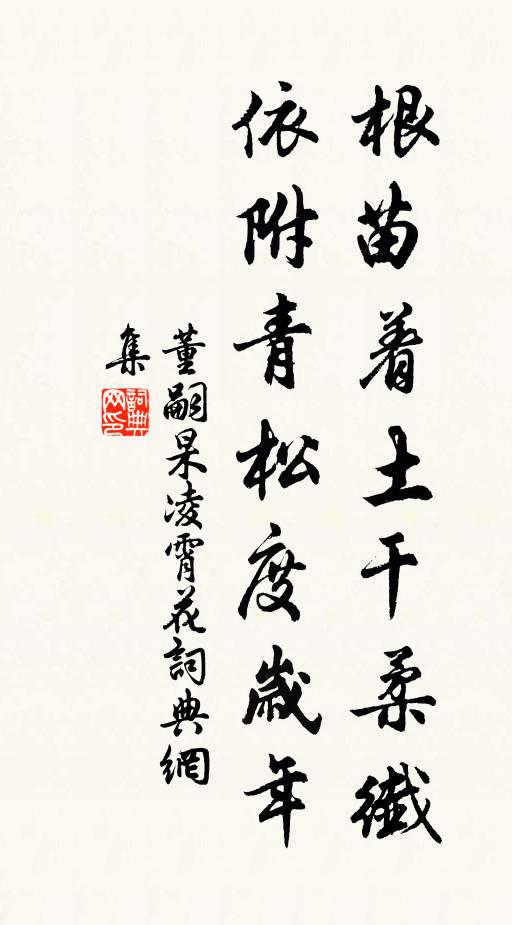 根苗着土干柔纖
依附青松度歲年
董嗣杲凌霄花詞典網
集
詞典
网印